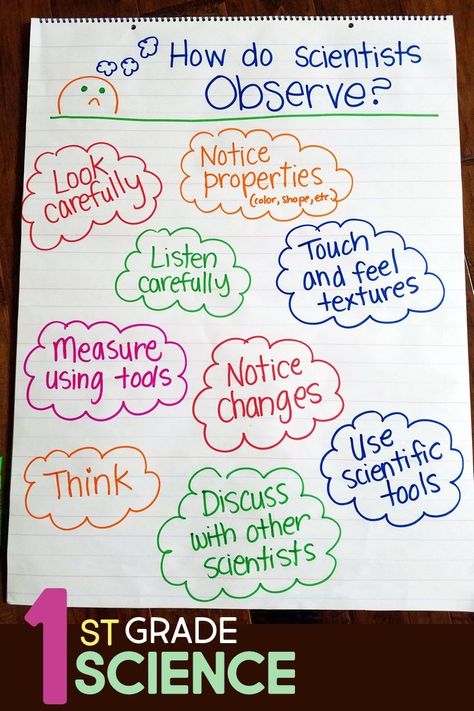 How do scientists
Observe?
Look
carefully
Notice
properties
(color, shape, etc.)
Listen
carefully
Touch
and feel
textures
Measure
using tools
Notice
changes
Use
scientific
tools
Think
Discuss
with other
scientists
1ST GRADE
SCIENCE